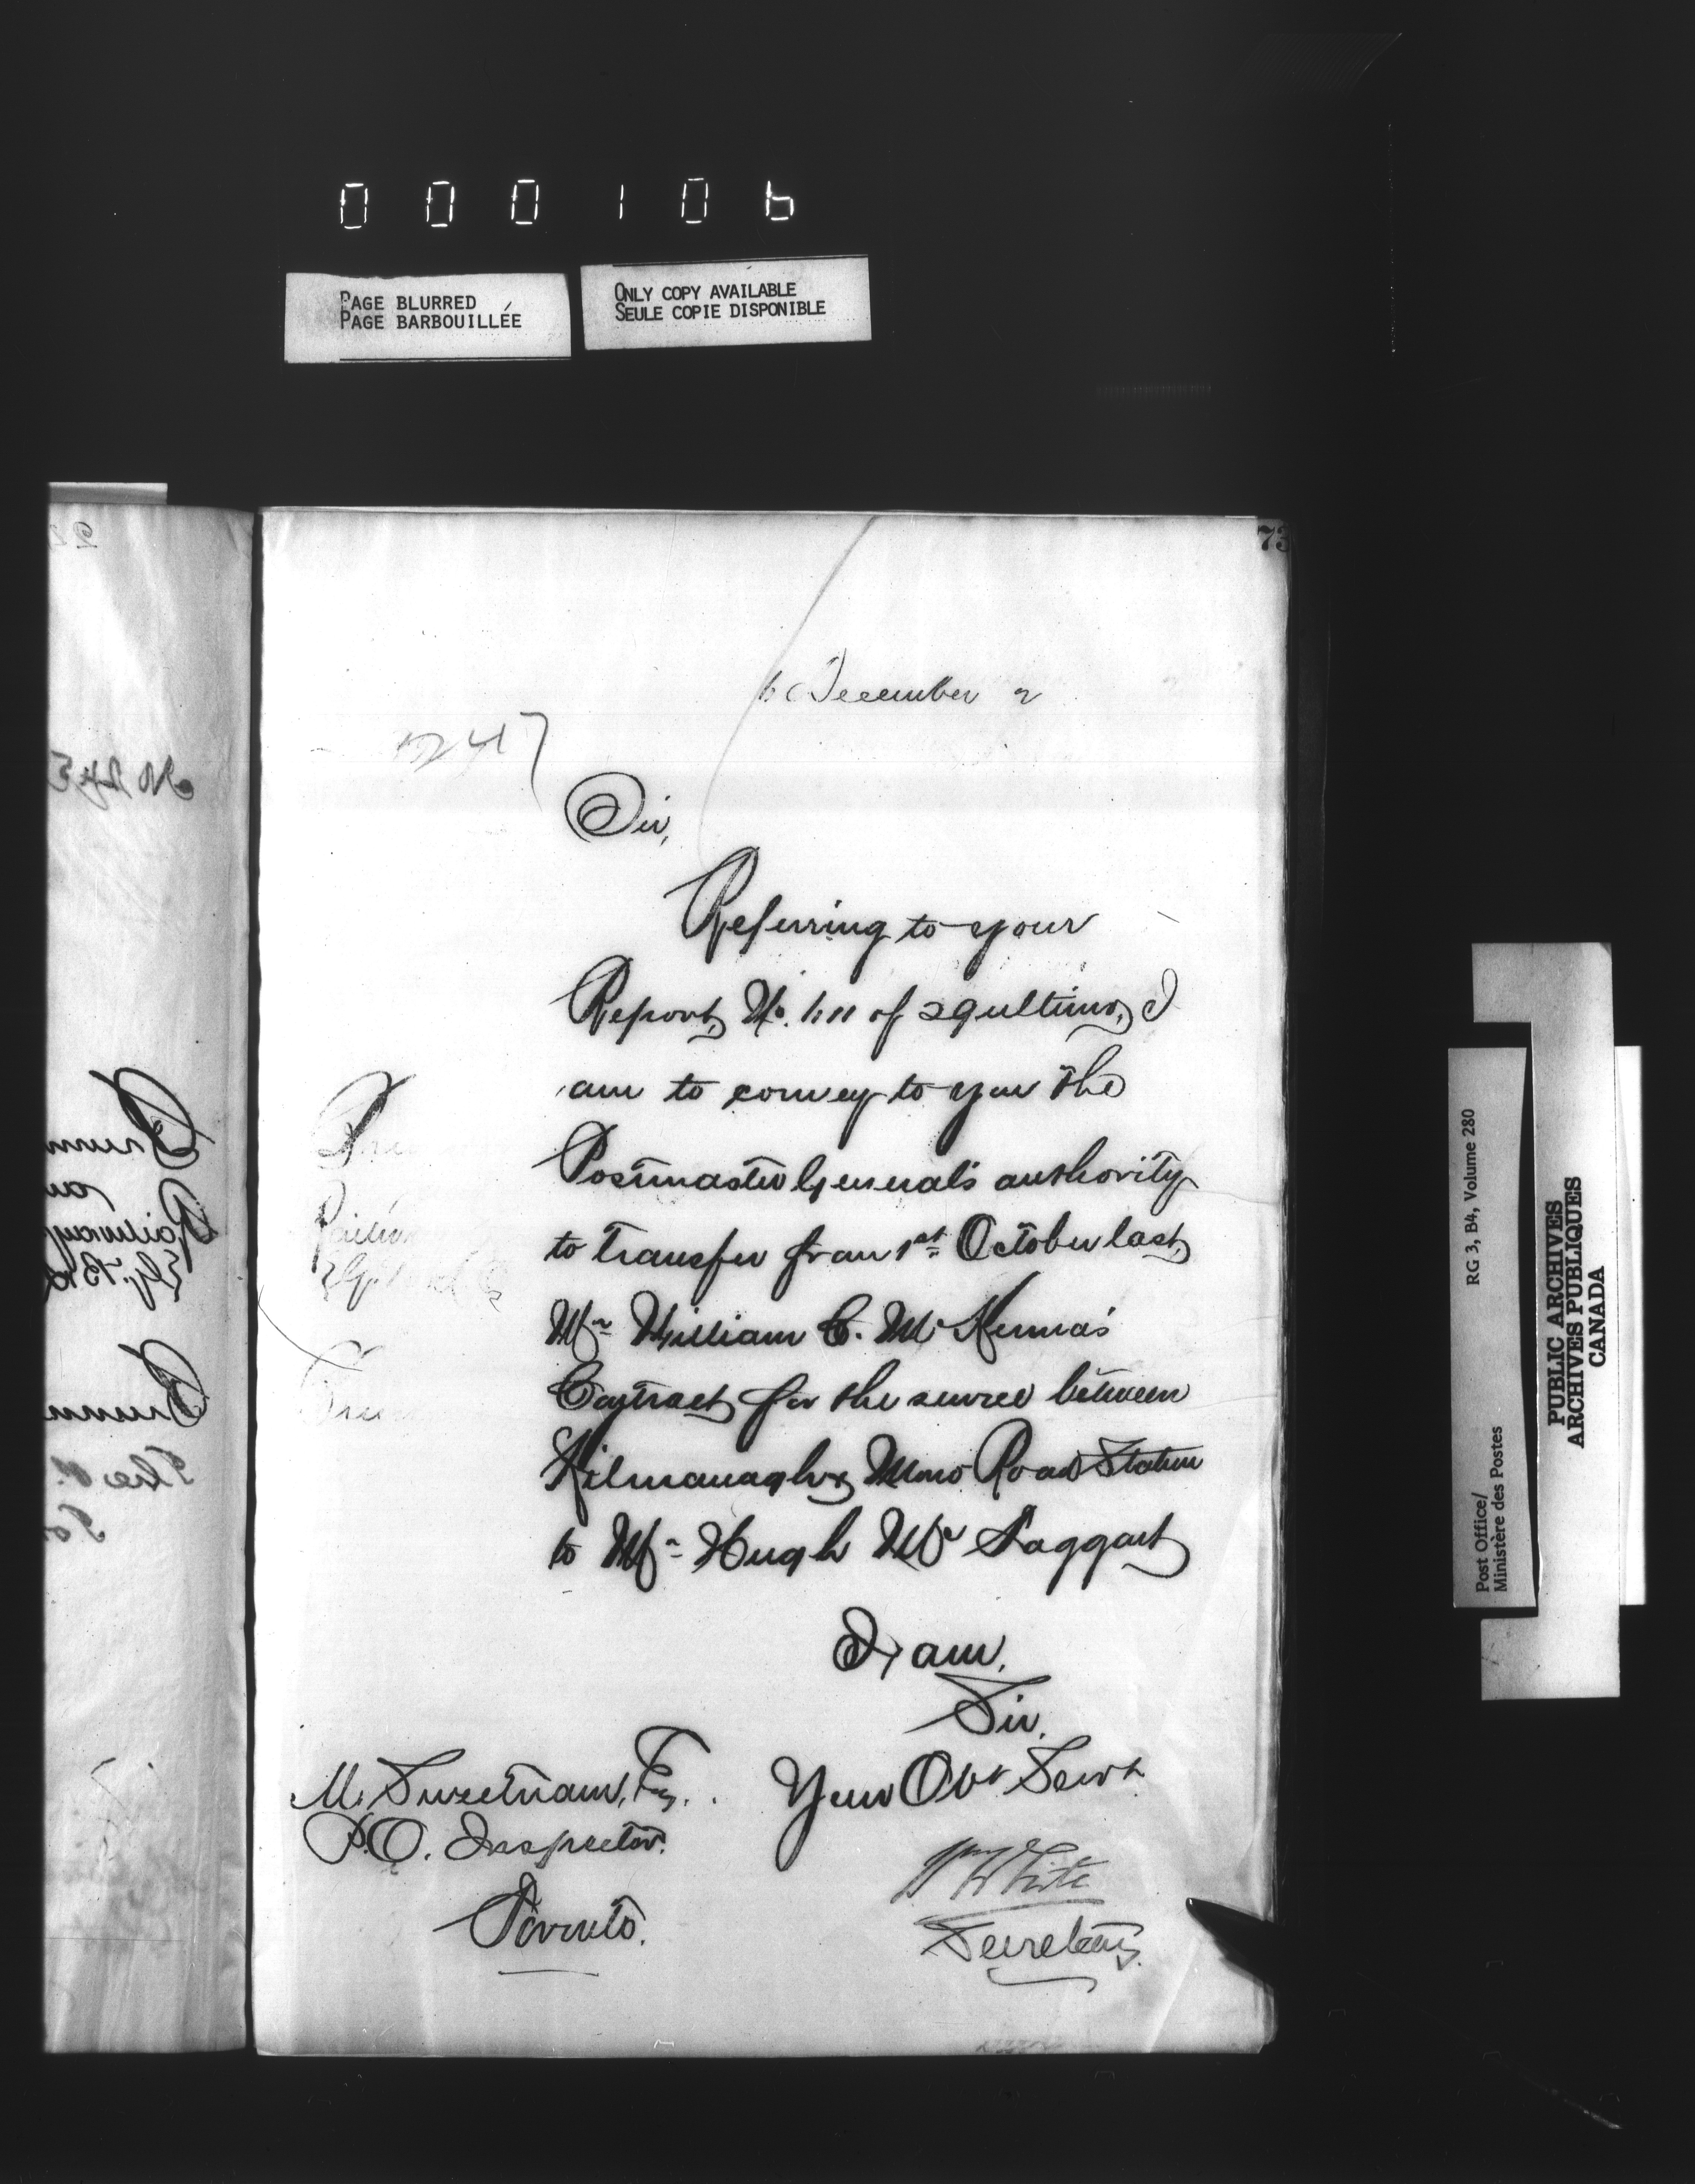 000106
PAGE BLURRED
PAGE BARBOUILLÉE
ONLY COPY AVAILABLE
SEULE COPIE DISPONIBLE
73
6 December 2
12417
Sir,
Referring to your
Report, No. of 29 ultimo, I
am to convey to you the
Postmaster General's authority
to transfer from 1st October last,
Mr William C. McKenna's
Contract for the service between
Kilmanagh & Mono Road Station
to Mr Hugh McTaggart
I am,
Sir,
Your Obt Servt
M. Sweetnam, Esq.
P.O. Inspector.
Toronto.
Wm White
Secretary.
Post Office/
Ministère des Postes
RG 3, B4, Volume 280
PUBLIC ARCHIVES
ARCHIVES PUBLIQUES
CANADA